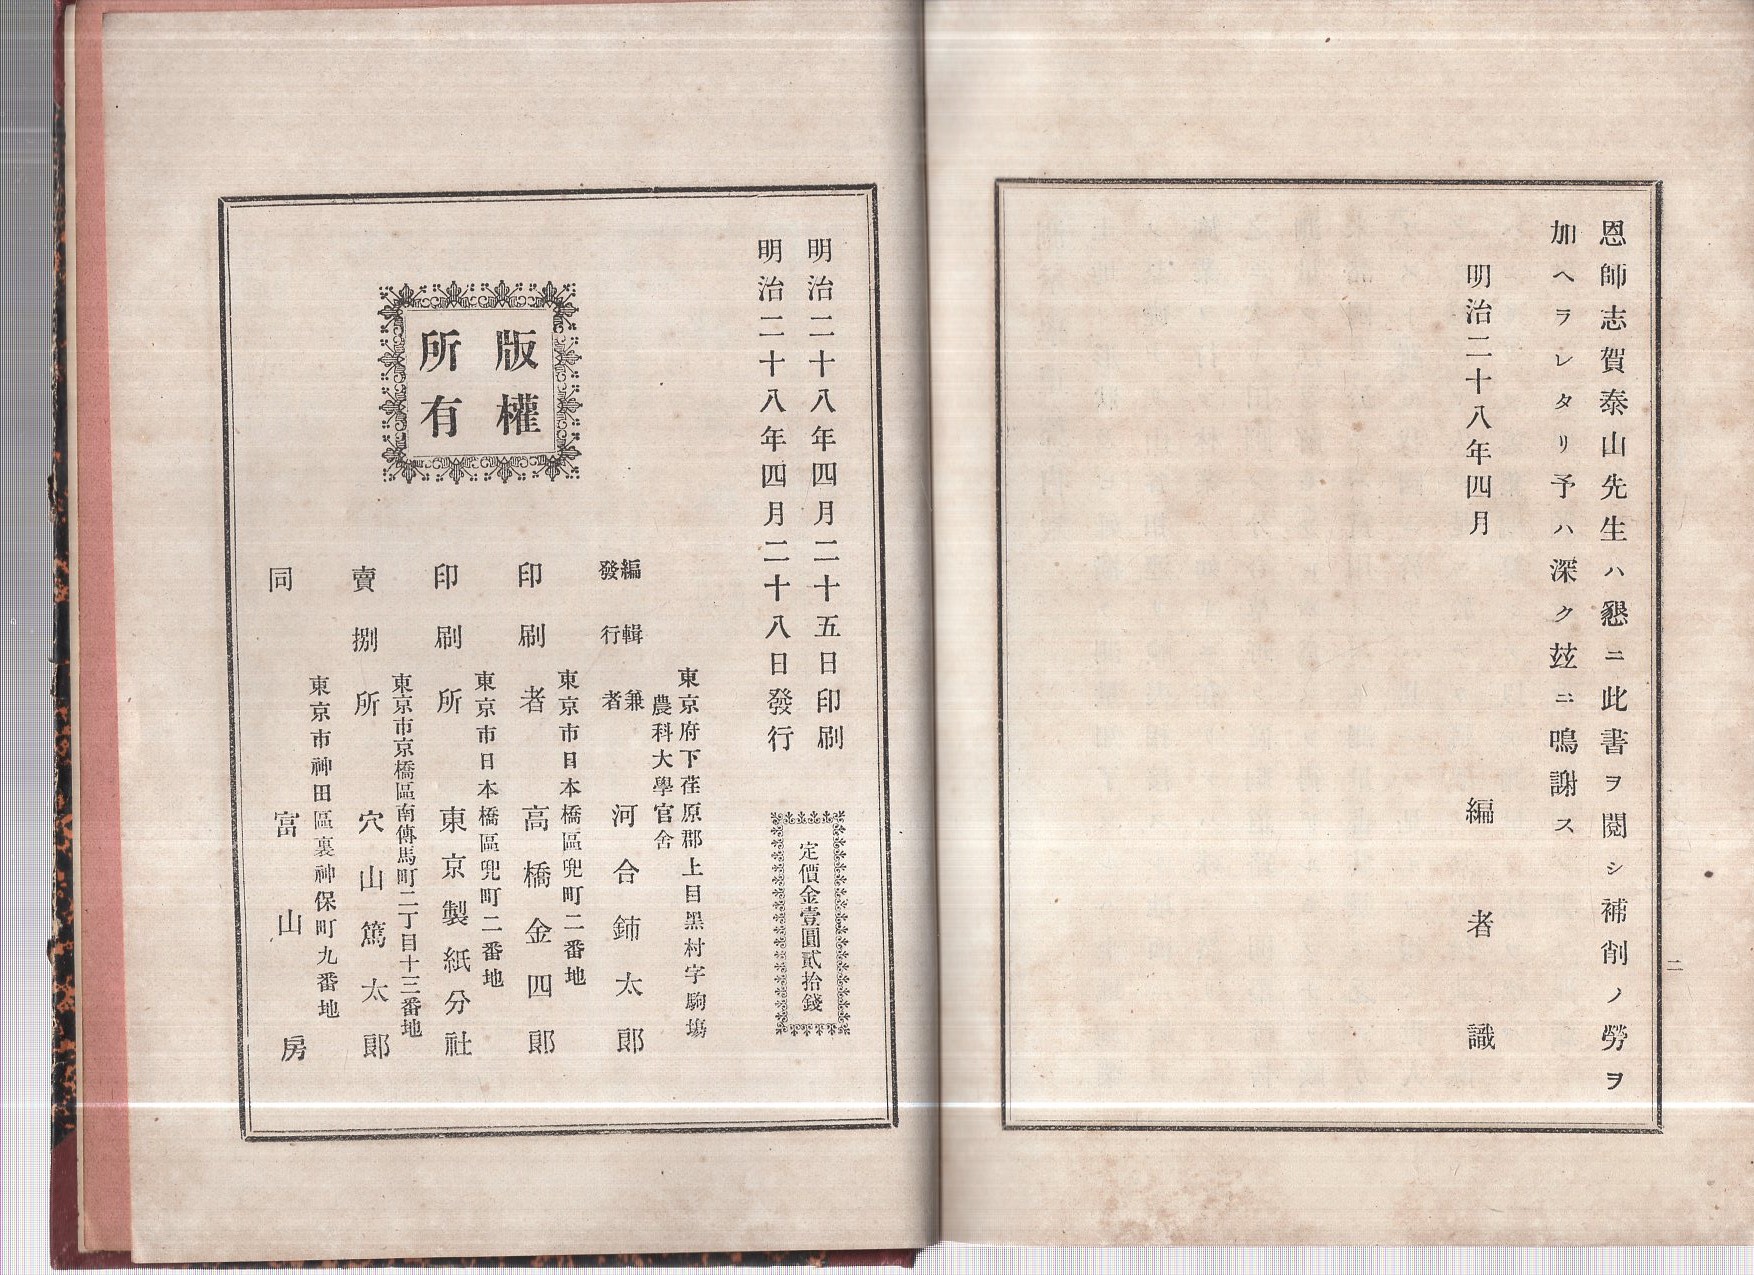 恩師志賀泰山先生ハ懇ニ此書ヲ閱シ補削ノ勞ヲ
加ヘラレタリ予ハ深ク玆ニ鳴謝ス
明治二十八年四月
編者識
二
明治二十八年四月二十五日印刷
明治二十八年四月二十八日發行
定價金壹圓貳拾錢
版權
所有
東京府下荏原郡上目黑村字駒塲
農科大學官舍
編輯兼
發行者
河合鈰太郎
東京市日本橋區兜町二番地
印刷者
高橋金四郎
東京市日本橋區兜町二番地
印刷所
東京製紙分社
東京市京橋區南傳馬町二丁目十三番地
賣捌所
穴山篤太郎
東京市神田區裏神保町九番地
同
富山房